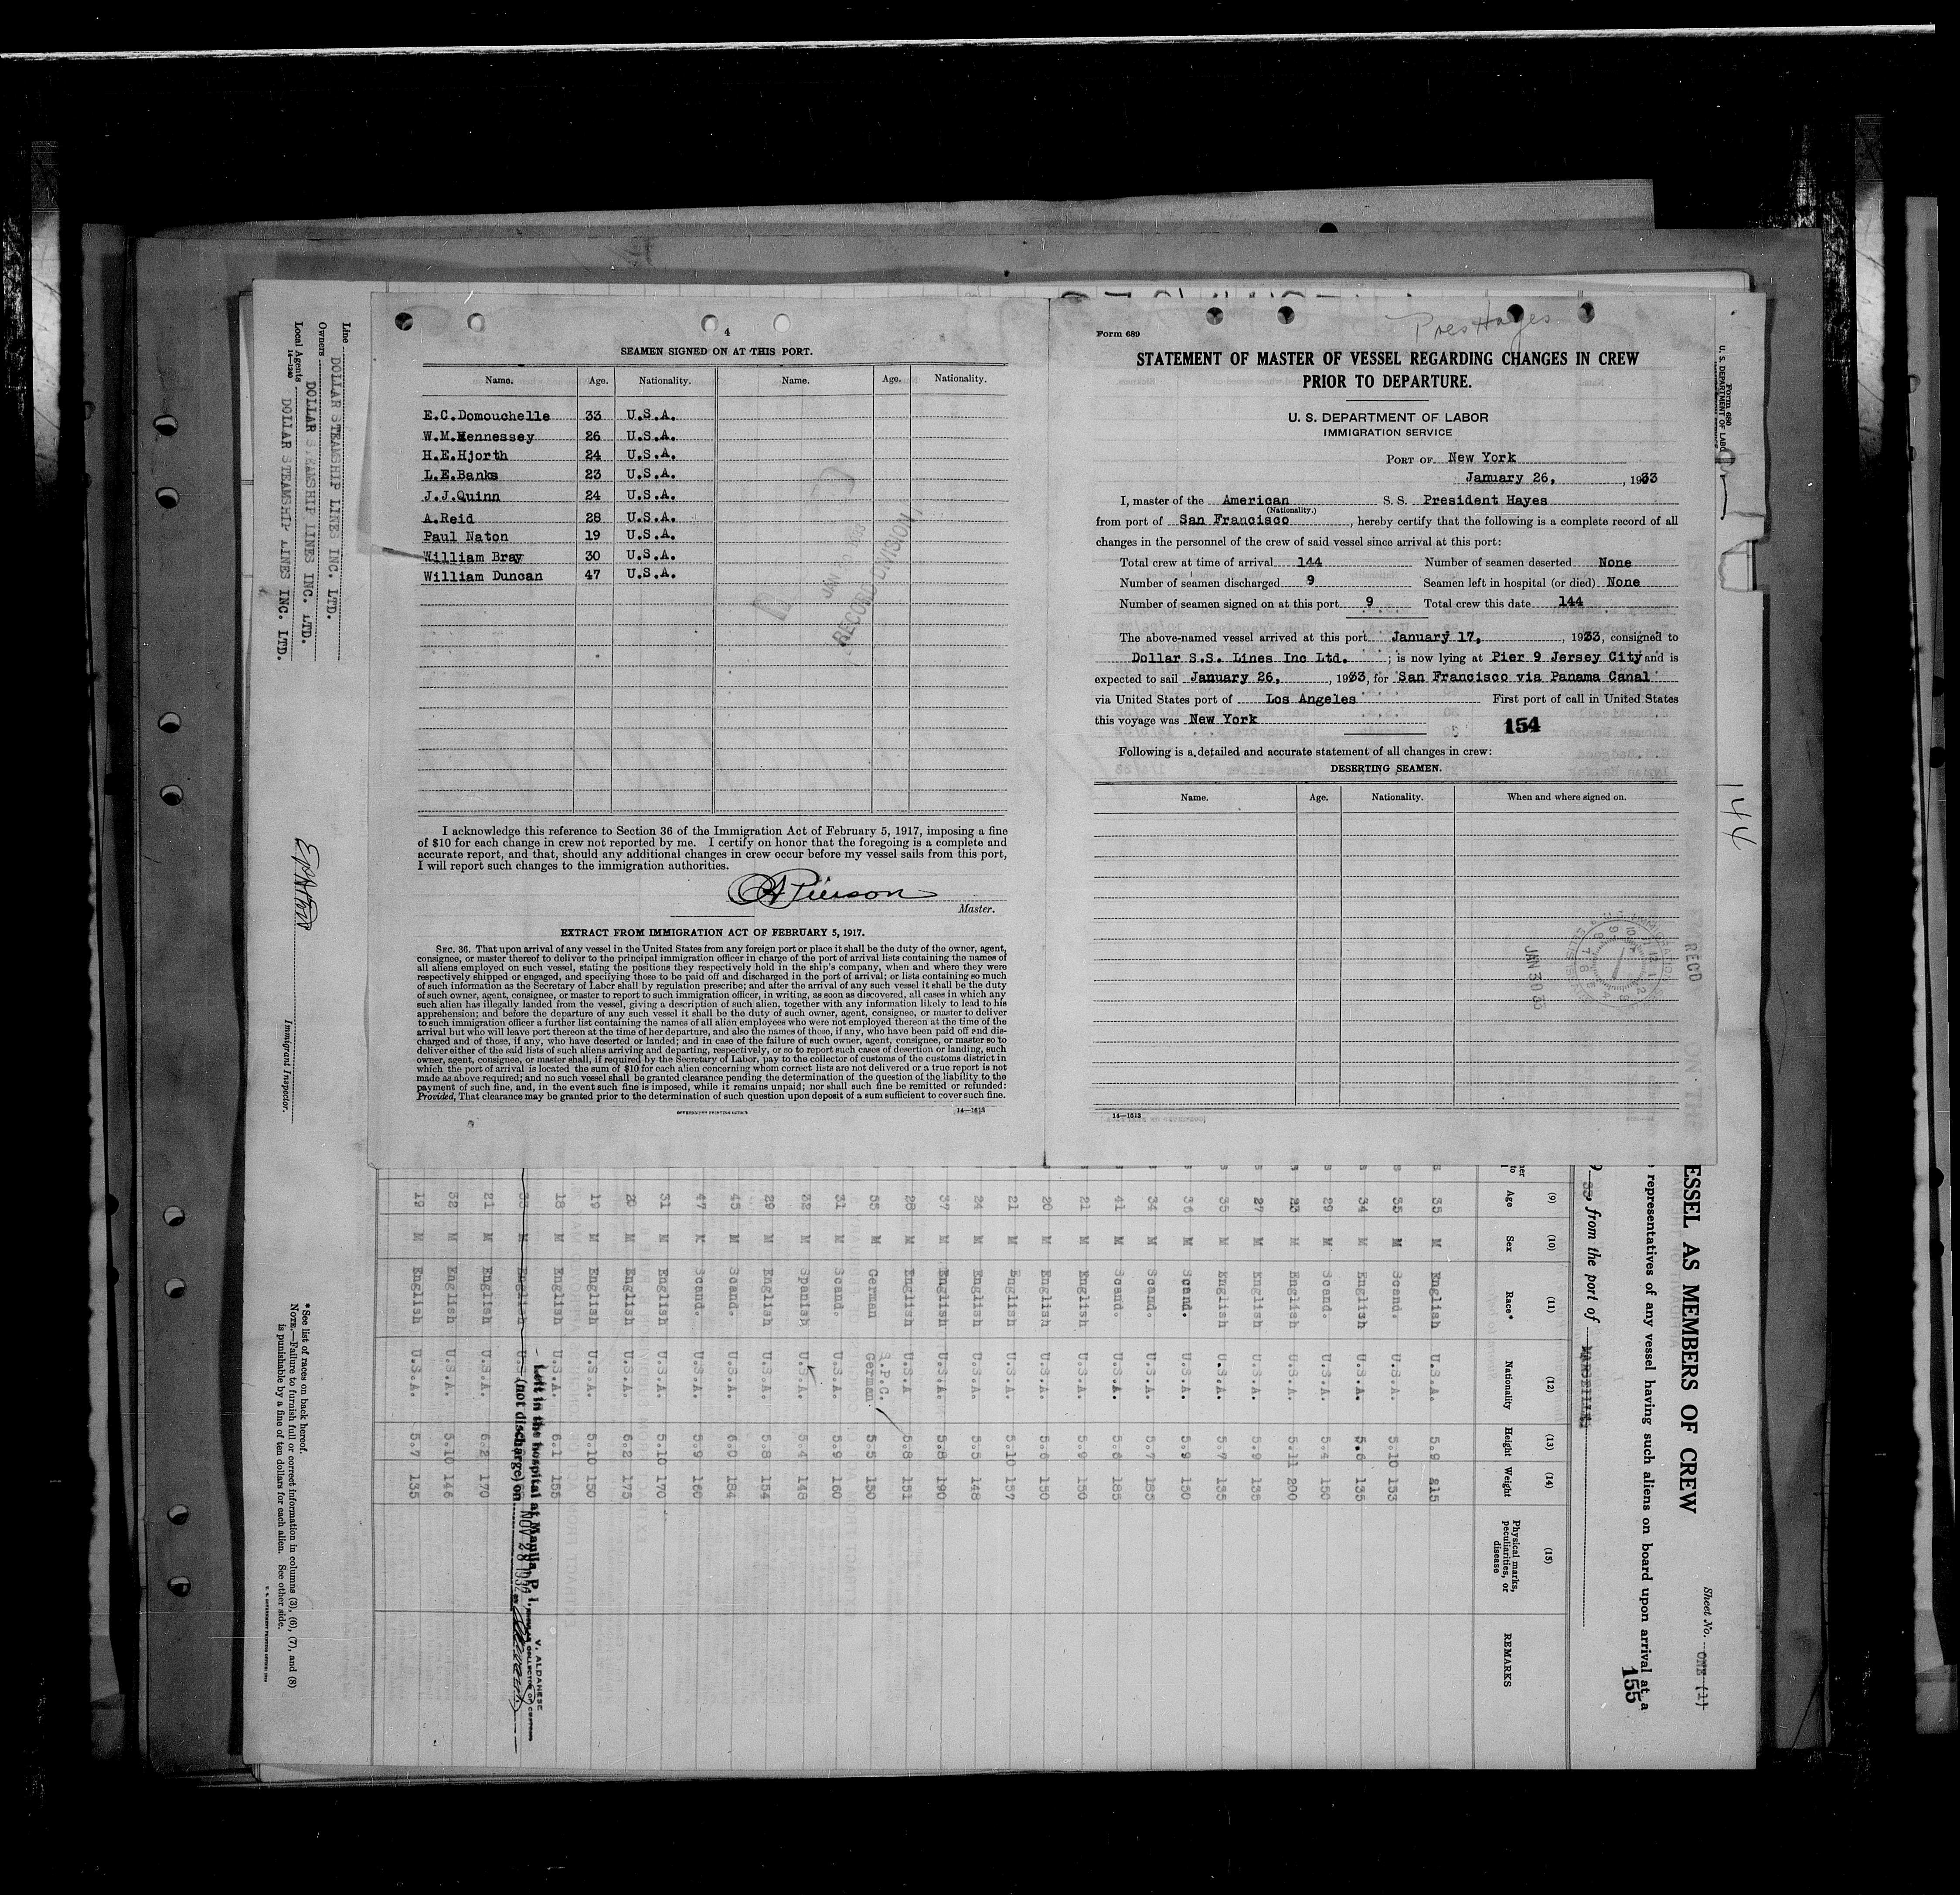 4
SEAMEN SIGNED ON AT THIS PORT.
Name. Age. Nationality. Name. Age. Nationality.
E.C.Domouchelle 33 U.S.A.
W.M.Hennessey 26 U.S.A.
H.E.Hjorth 24 U.S.A.
L.E.Banks 23 U.S.A.
J.J.Quinn 24 U.S.A.
A.Reid 28 U.S.A.
Paul Naton 19 U.S.A.
William Bray 30 U.S.A.
William Duncan 47 U.S.A.
RECORD DIVISION
I acknowledge this reference to Section 36 of the Immigration Act of February 5, 1917, imposing a fine
of $10 for each change in crew not reported by me. I certify on honor that the foregoing is a complete and
accurate report, and that, should any additional changes in crew occur before my vessel sails from this port,
I will report such changes to the immigration authorities.
Pierson
Master.
EXTRACT FROM IMMIGRATION ACT OF FEBRUARY 5, 1917.
SEC. 36. That upon arrival of any vessel in the United States from any foreign port or place it shall be the duty of the owner, agent,
consignee, or master thereof to deliver to the principal immigration officer in charge of the port of arrival lists containing the names of
all aliens employed on such vessel, stating the positions they respectively hold in the ship's company, when and where they were
respectively shipped or engaged, and specifying those to be paid off and discharged in the port of arrival; or lists containing so much
of such information as the Secretary of Labor shall by regulation prescribe; and after the arrival of any such vessel it shall be the duty
of such owner, agent, consignee, or master to report to such immigration officer, in writing, as soon as discovered, all cases in which any
such alien has illegally landed from the vessel, giving a description of such alien, together with any information likely to lead to his
apprehension; and before the departure of any such vessel it shall be the duty of such owner, agent, consignee, or master to deliver
to such immigration officer a further list containing the names of all alien employees who were not employed thereon at the time of the
arrival but who will leave port thereon at the time of her departure, and also the names of those, if any, who have been paid off and dis-
charged and of those, if any, who have deserted or landed; and in case of the failure of such owner, agent, consignee, or master so to
deliver either of the said lists of such aliens arriving and departing, respectively, or so to report such cases of desertion or landing, such
owner, agent, consignee, or master shall, if required by the Secretary of Labor, pay to the collector of customs of the customs district in
which the port of arrival is located the sum of $10 for each alien concerning whom correct lists are not delivered or a true report is not
made as above required; and no such vessel shall be granted clearance pending the determination of the question of the liability to the
payment of such fine, and, in the event such fine is imposed, while it remains unpaid; nor shall such fine be remitted or refunded:
Provided, That clearance may be granted prior to the determination of such question upon deposit of a sum sufficient to cover such fine.
GOVERNMENT PRINTING OFFICE 14—1613
Pres Hayes
Form 689
STATEMENT OF MASTER OF VESSEL REGARDING CHANGES IN CREW
PRIOR TO DEPARTURE.
U. S. DEPARTMENT OF LABOR
IMMIGRATION SERVICE
PORT OF New York
January 26, , 1933
I, master of the American S. S. President Hayes
(Nationality.)
from port of San Francisco, hereby certify that the following is a complete record of all
changes in the personnel of the crew of said vessel since arrival at this port:
Total crew at time of arrival 144 Number of seamen deserted None
Number of seamen discharged 9 Seamen left in hospital (or died) None
Number of seamen signed on at this port 9 Total crew this date 144
The above-named vessel arrived at this port January 17, , 1933, consigned to
Dollar S.S. Lines Inc Ltd. ; is now lying at Pier 9 Jersey City and is
expected to sail January 26, , 1933, for San Francisco via Panama Canal
via United States port of Los Angeles First port of call in United States
this voyage was New York
154
Following is a detailed and accurate statement of all changes in crew:
DESERTING SEAMEN.
Name. Age. Nationality. When and where signed on.
JAN 30 33
RECD
14—1613
144
Form 680
U. S. DEPARTMENT OF LABOR
Line DOLLAR STEAMSHIP LINES INC. LTD.
Owners DOLLAR STEAMSHIP LINES INC. LTD.
Local Agents DOLLAR STEAMSHIP LINES INC. LTD.
14—1240
Immigrant Inspector.
ESSEL AS MEMBERS OF CREW
Sheet No. ONE (1)
representatives of any vessel having such aliens on board upon arrival at a
155
33, from the port of MARSEILLE
(9) (10) (11) (12) (13) (14) (15)
Age Sex Race* Nationality Height Weight Physical marks, peculiarities, or disease REMARKS
35 M English U.S.A. 5.9 215
35 M Scand. U.S.A. 5.10 153
34 M English U.S.A. 5.6 135
29 M Scand. U.S.A. 5.4 150
23 M English U.S.A. 5.11 200
27 M English U.S.A. 5.9 135
35 M English U.S.A. 5.7 135
36 M Scand. U.S.A. 5.9 150
34 M Scand. U.S.A. 5.7 185
41 M Scand. U.S.A. 5.6 185
21 M English U.S.A. 5.9 150
20 M English U.S.A. 5.6 150
21 M English U.S.A. 5.10 157
24 M English U.S.A. 5.5 148
37 M English U.S.A. 5.8 190
28 M English U.S.A 5.8 151
S.P.C.
55 M German German 5.5 150
31 M Scand. U.S.A. 5.9 160
32 M Spanish U.S.A. 5.4 148
29 M English U.S.A. 5.8 154
45 M Scand. U.S.A. 6.0 184
47 M Scand. U.S.A. 5.9 160
31 M English U.S.A. 5.10 170
20 M English U.S.A. 6.2 175
19 M English U.S.A. 5.10 150
18 M English U.S.A. 6.1 155
M English
Left in the hospital at Manila, P. I.
(not discharge) on NOV 28 1932
V. ALDANESE
INSULAR COLLECTOR OF CUSTOMS
21 M English U.S.A. 6.2 170
32 M English U.S.A. 5.10 146
19 M English U.S.A. 5.7 135
*See list of races on back hereof.
NOTE.—Failure to furnish full or correct information in columns (3), (6), (7), and (8)
is punishable by a fine of ten dollars for each alien. See other side.